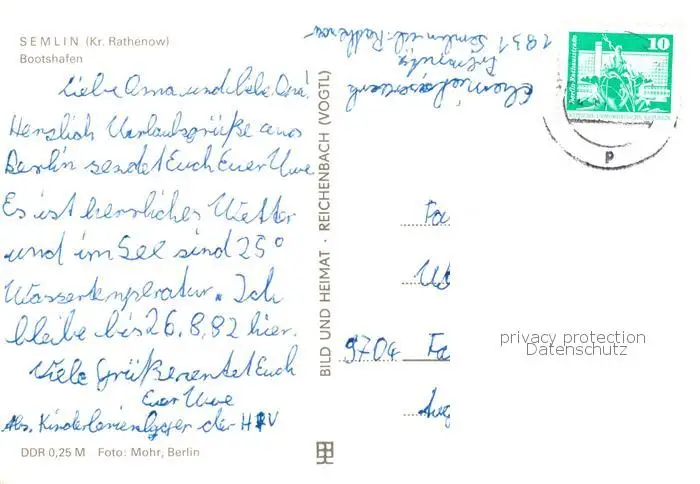 SEMLIN (Kr. Rathenow)
Bootshafen
Liebe Oma und liebe Oma!
Herzlich Urlaubsgrüße aus
Berlin sendet Euch Euer Uwe
Es ist herrliches Wetter
und im See sind 25°
Wassertemperatur. Ich
bleibe bis 26.8.82 hier.
Viele Grüße sendet Euch
Euer Uwe
Abs. Kinderferienlager der
DDR 0,25 M Foto: Mohr, Berlin
BILD UND HEIMAT · REICHENBACH (VOGTL)
Chemiefaserwerk
Premnitz
1831 Semlin
10
P
Fa
9704 Fa
privacy protection
Datenschutz